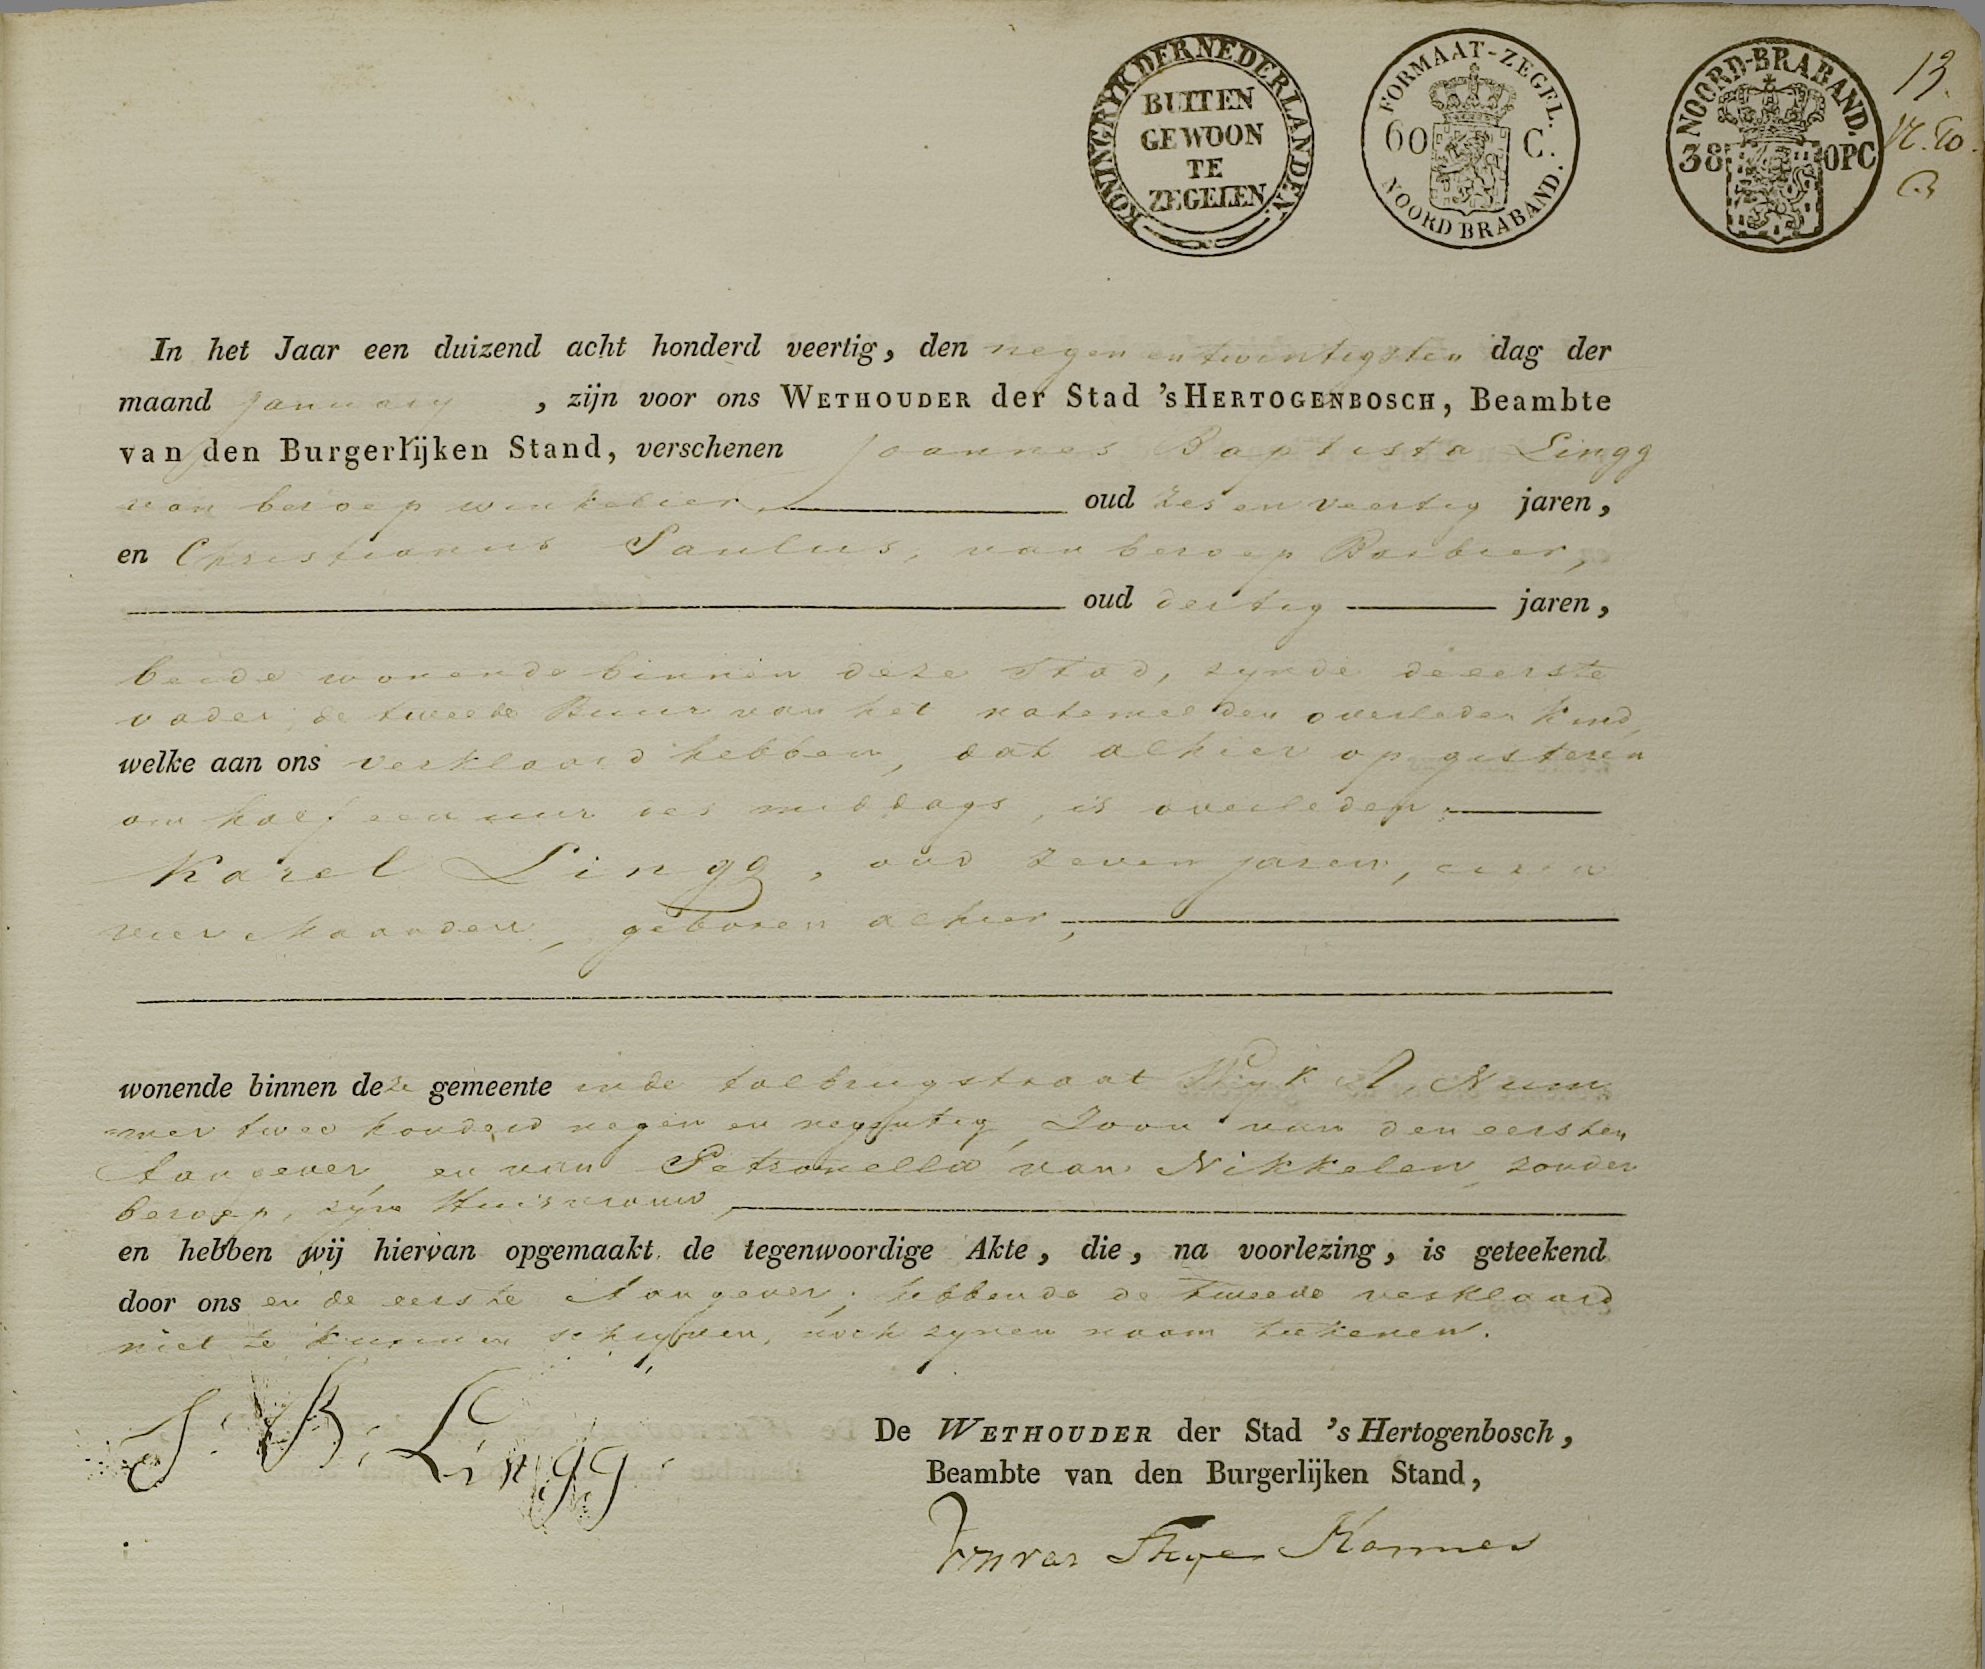 KONINGRYK DER NEDERLANDEN.
BUITEN
GEWOON
TE
ZEGELEN
FORMAAT-ZEGEL.
60 C.
NOORD BRABAND.
NOORD-BRABAND.
38 OPC
13.
In het Jaar een duizend acht honderd veertig, den negen en twintigsten dag der
maand January , zijn voor ons WETHOUDER der Stad 'sHERTOGENBOSCH, Beambte
van den Burgerlijken Stand, verschenen Joannes Baptista Lingg
van beroep winkelier, oud zes en veertig jaren,
en Christianus Paulus, van beroep Barbier,
oud dertig jaren,
beide wonende binnen deze Stad, zynde de eerste
vader, de tweede Buur van het natemelden overleden kind,
welke aan ons verklaard hebben, dat alhier op gisteren
om half een uur des middags, is overleden
Karel Lingg, oud zeven jaren, en
vier Maanden, geboren alhier,
wonende binnen deze gemeente in de tolbrugstraat Wyk A, Num
mer twee honderd negen en negentig, Zoon van den eersten
Aangever, en van Petronella van Nikkelen, zonder
beroep, zyne Huisvrouw,
en hebben wij hiervan opgemaakt de tegenwoordige Akte, die, na voorlezing, is geteekend
door ons en de eerste Aangever; hebbende de tweede verklaard
niet te kunnen schryven, noch zynen naam teekenen.
J. B. Lingg.
De WETHOUDER der Stad 's Hertogenbosch,
Beambte van den Burgerlijken Stand,